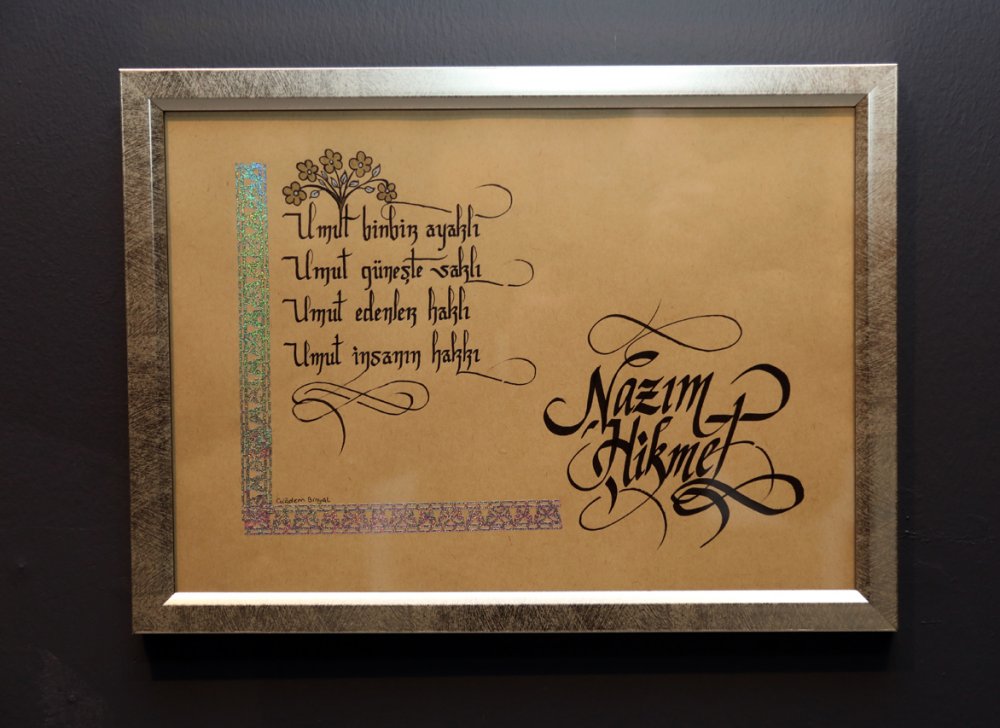 Umut binbir ayaklı
Umut güneşte saklı
Umut edenler haklı
Umut insanın hakkı
Nazım
Hikmet